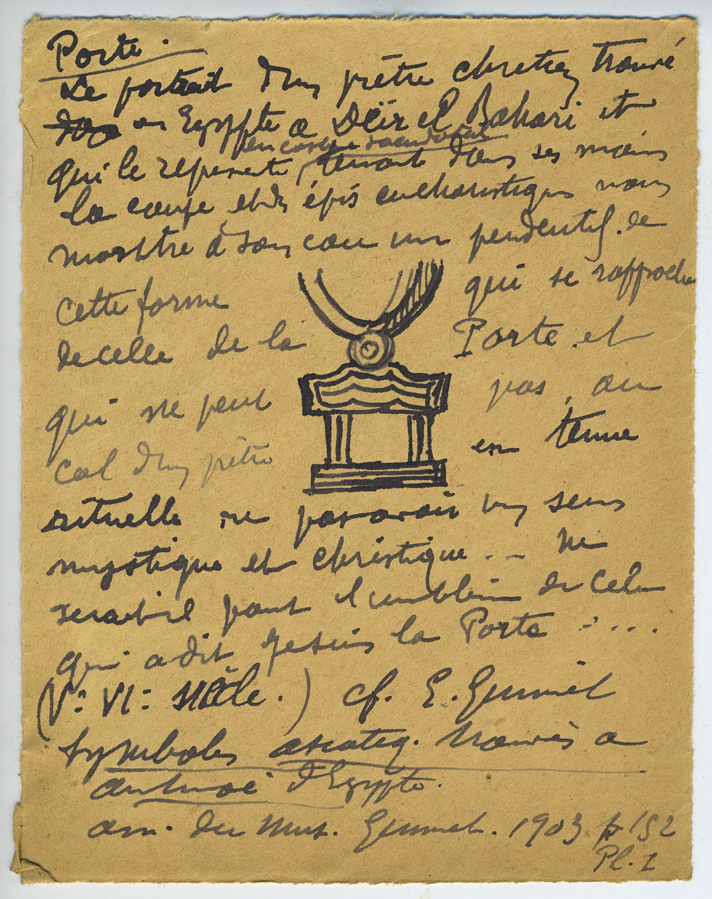 Porte.
Le portrait d'un prêtre chretien trouvé
en Egypte a Deïr el Bahari et
en costume sacerdotal
qui le represente, tenant dans ses mains
la coupe et les épis eucharistiques nous
montre à son cou un pendentif. de
cette forme qui se rapproche
de celle de la Porte. et
qui ne peut pas, au
col d'un prêtre en tenue
rituelle ne pas avoir un sens
mystique et christique... Ne
serait-il pas l'emblème de Celui
qui a dit je suis la Porte ....
(Ve. VIe. siècle.) cf. E. Guimet
Symboles asiatiq. trouvés a
antinoé d'Egypte.
ann. du Mus. Guimet. 1903 p 152
Pl. I